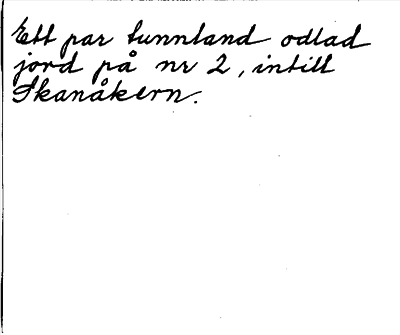 Ett par tunnland odlad
jord på nr 2, intill
Skanåkern.